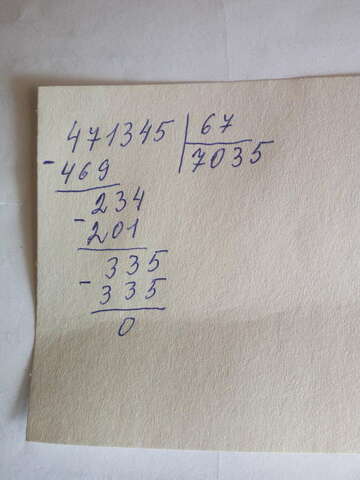 471345 67
-469 7035
-234
201
-335
335
0